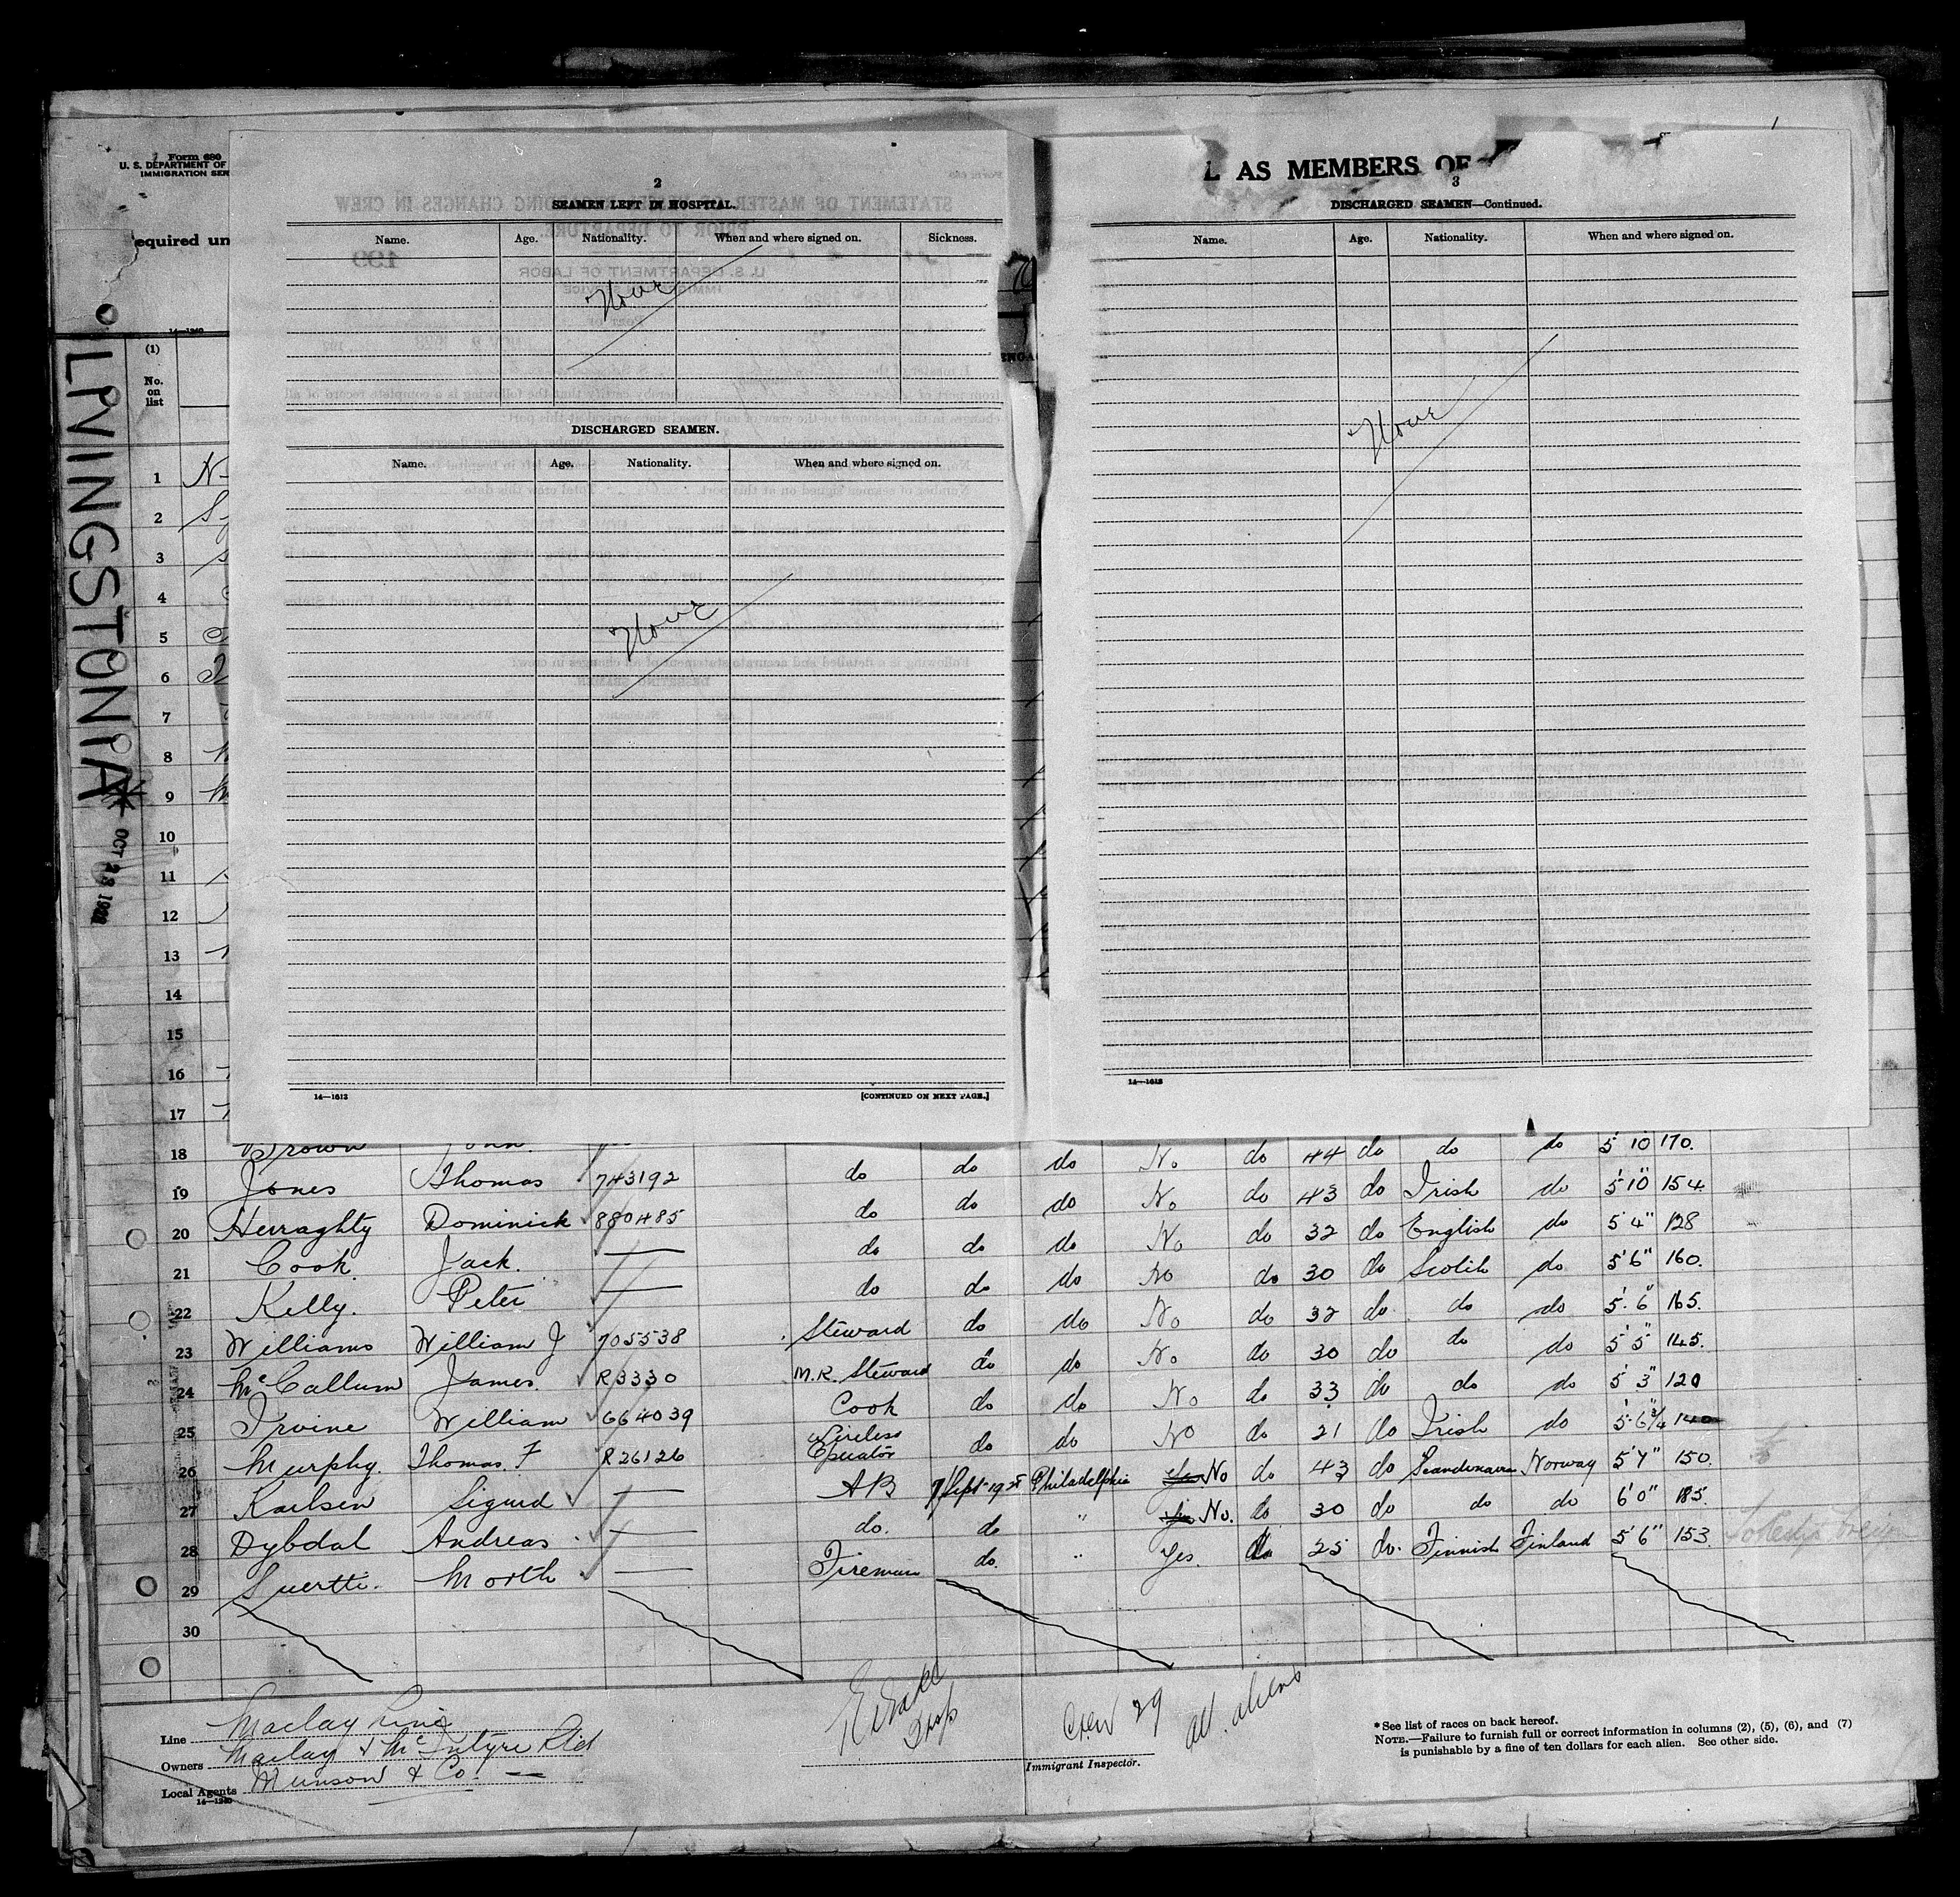 Form 680
U. S. DEPARTMENT OF
IMMIGRATION SER
equired un
14—1240
LIVINGSTONIA*
OCT 28 19
(1)
No.
on
list
2
SEAMEN LEFT IN HOSPITAL.
Name. Age. Nationality. When and where signed on. Sickness.
None
DISCHARGED SEAMEN.
Name. Age. Nationality. When and where signed on.
None
14—1613
[CONTINUED ON NEXT PAGE.]
L AS MEMBERS OF
3
DISCHARGED SEAMEN—Continued.
Name. Age. Nationality. When and where signed on.
None
14—1613
1
2
3
4
5
6
7
8
9
10
11
12
13
14
15
16
17
18 Brown John No do 44 do do do 5 10 170.
19 Jones Thomas 743192 do do do No do 43 do Irish do 5'10" 154
20 Herraghty Dominick 880485 do do do No do 32 do English do 5'4" 128
21 Cook Jack. — do do do No do 30 do Scotch do 5'6" 160.
22 Kelly. Peter — do do do No do 32 do do do 5'.6" 165.
23 Williams William J 705538 Steward do do No do 30 do do do 5'5" 145.
24 McCallum James. R3330 M.R. Steward do do No do 33 do do do 5'3" 120
25 Irvine William 664039 Cook do do No do 21 do Irish do 5'6 3/4 140
26 Murphy. Thomas. F R26126 Wireless Operator do do No do 43 do Scandinavian Norway 5'7" 150.
27 Karlsen Sigurd — AB 7 Sept 1925 Philadelphia Yes No do 30 do do do 6'0" 185.
28 Dybdal Andreas — do. do " Yes No. do 25 do. Finnish Finland 5'6" 153.
29 Suertti. Morth — Fireman do. " Yes.
30
Line Maclay Line
Owners Maclay & McIntyre Ltd
Local Agents Munson & Co. —
14—1240
Crew 29 all aliens
Immigrant Inspector.
*See list of races on back hereof.
NOTE.—Failure to furnish full or correct information in columns (2), (5), (6), and (7)
is punishable by a fine of ten dollars for each alien. See other side.